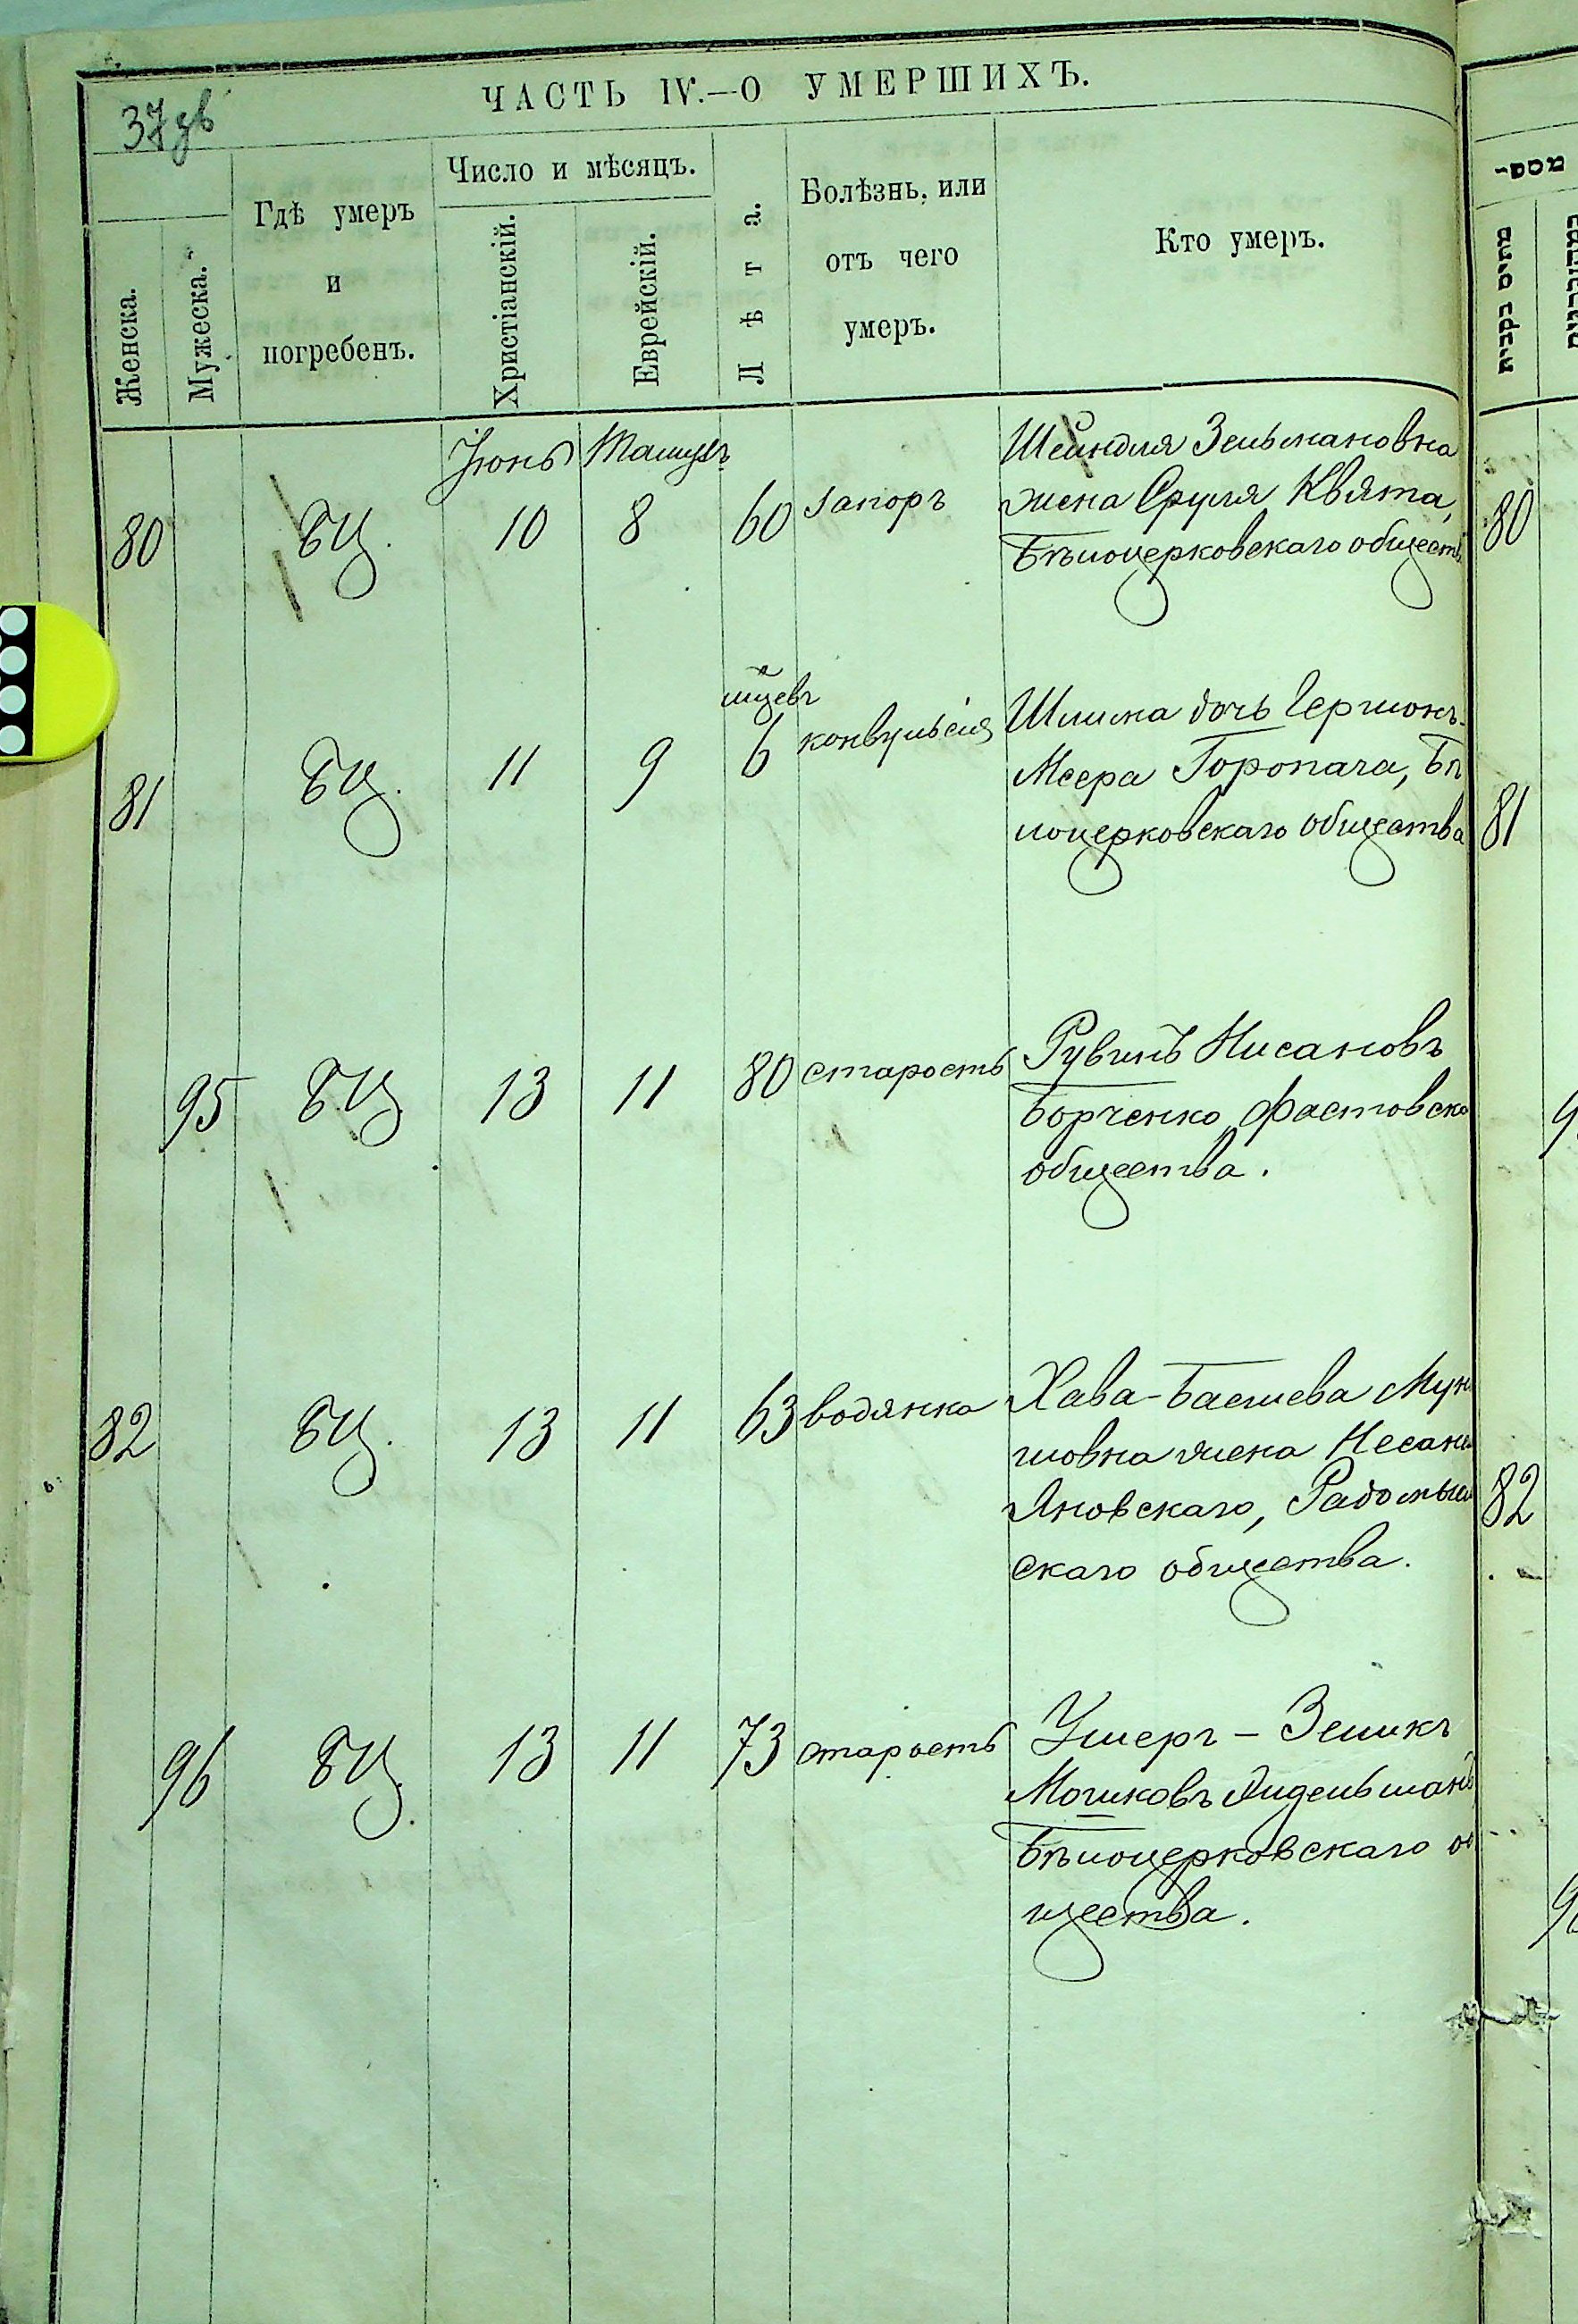 ЧАСТЬ IV.—О УМЕРШИХЪ.
37
Женска.
Мужеска.
Гдѣ умеръ
и
погребенъ.
Число и мѣсяцъ.
Христіанскій.
Еврейскій.
Лѣта.
Болѣзнь, или
отъ чего
умеръ.
Кто умеръ.
Іюнь Тамузъ
80 БЦ. 10 8 60 запоръ
Шейндля Зельмановна
жена Сруля Квята,
Бѣлоцерковскаго обществ
81 БЦ. 11 9 6 мцевъ конвульсія
Шлима дочь Гершонъ-
Меера Горопача, Бѣ
лоцерковскаго общества
95 БЦ 13 11 80 старость
Рувинъ Нисановъ
Борченко, Фастовска
общества.
82 БЦ. 13 11 63 водянка
Хава-Басшева Мун
шовна жена Несан
Яновскаго, Радомысл
скаго общества.
96 БЦ. 13 11 73 старость
Ушеръ-Зеликъ
Мошковъ
Бѣлоцерковскаго об
щества.
80
81
82